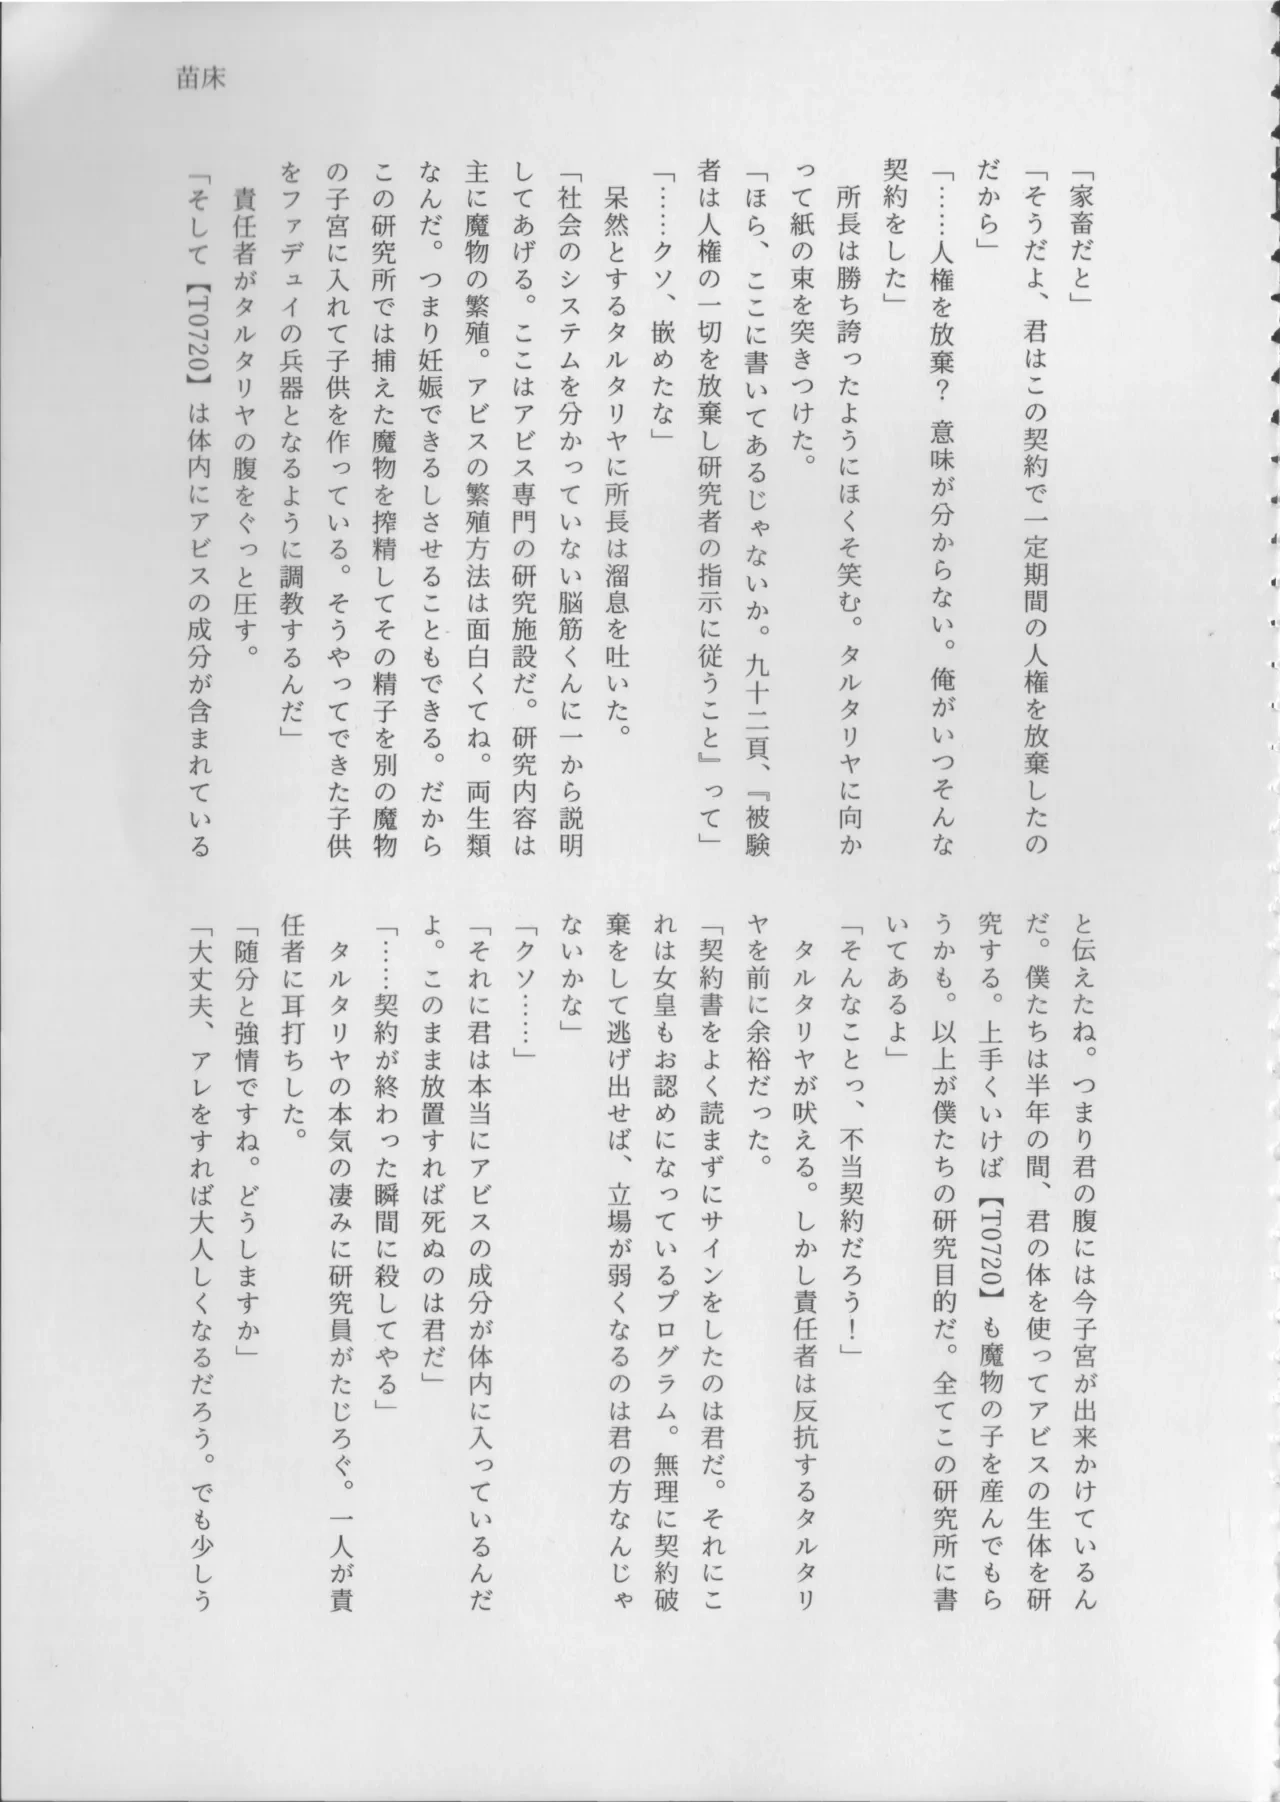 苗床
「家畜だと」
「そうだよ、君はこの契約で一定期間の人権を放棄したの
だから」
「……人権を放棄？　意味が分からない。俺がいつそんな
契約をした」
　所長は勝ち誇ったようにほくそ笑む。タルタリヤに向か
って紙の束を突きつけた。
「ほら、ここに書いてあるじゃないか。九十二頁、『被験
者は人権の一切を放棄し研究者の指示に従うこと』って」
「……クソ、嵌めたな」
　呆然とするタルタリヤに所長は溜息を吐いた。
「社会のシステムを分かっていない脳筋くんに一から説明
してあげる。ここはアビス専門の研究施設だ。研究内容は
主に魔物の繁殖。アビスの繁殖方法は面白くてね。両生類
なんだ。つまり妊娠できるしさせることもできる。だから
この研究所では捕えた魔物を搾精してその精子を別の魔物
の子宮に入れて子供を作っている。そうやってできた子供
をファデュイの兵器となるように調教するんだ」
　責任者がタルタリヤの腹をぐっと圧す。
「そして【T0720】は体内にアビスの成分が含まれている
と伝えたね。つまり君の腹には今子宮が出来かけているん
だ。僕たちは半年の間、君の体を使ってアビスの生体を研
究する。上手くいけば【T0720】も魔物の子を産んでもら
うかも。以上が僕たちの研究目的だ。全てこの研究所に書
いてあるよ」
「そんなことっ、不当契約だろう！」
　タルタリヤが吠える。しかし責任者は反抗するタルタリ
ヤを前に余裕だった。
「契約書をよく読まずにサインをしたのは君だ。それにこ
れは女皇もお認めになっているプログラム。無理に契約破
棄をして逃げ出せば、立場が弱くなるのは君の方なんじゃ
ないかな」
「クソ……」
「それに君は本当にアビスの成分が体内に入っているんだ
よ。このまま放置すれば死ぬのは君だ」
「……契約が終わった瞬間に殺してやる」
　タルタリヤの本気の凄みに研究員がたじろぐ。一人が責
任者に耳打ちした。
「随分と強情ですね。どうしますか」
「大丈夫、アレをすれば大人しくなるだろう。でも少しう